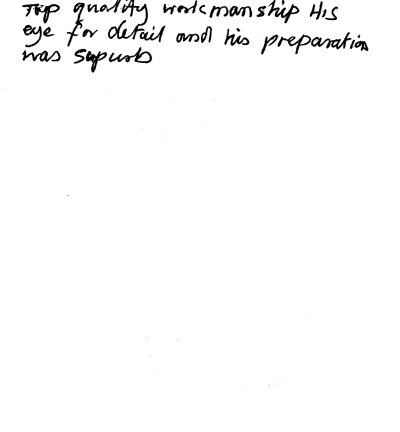 Top quality workmanship His
eye for detail and his preparation
was supurb